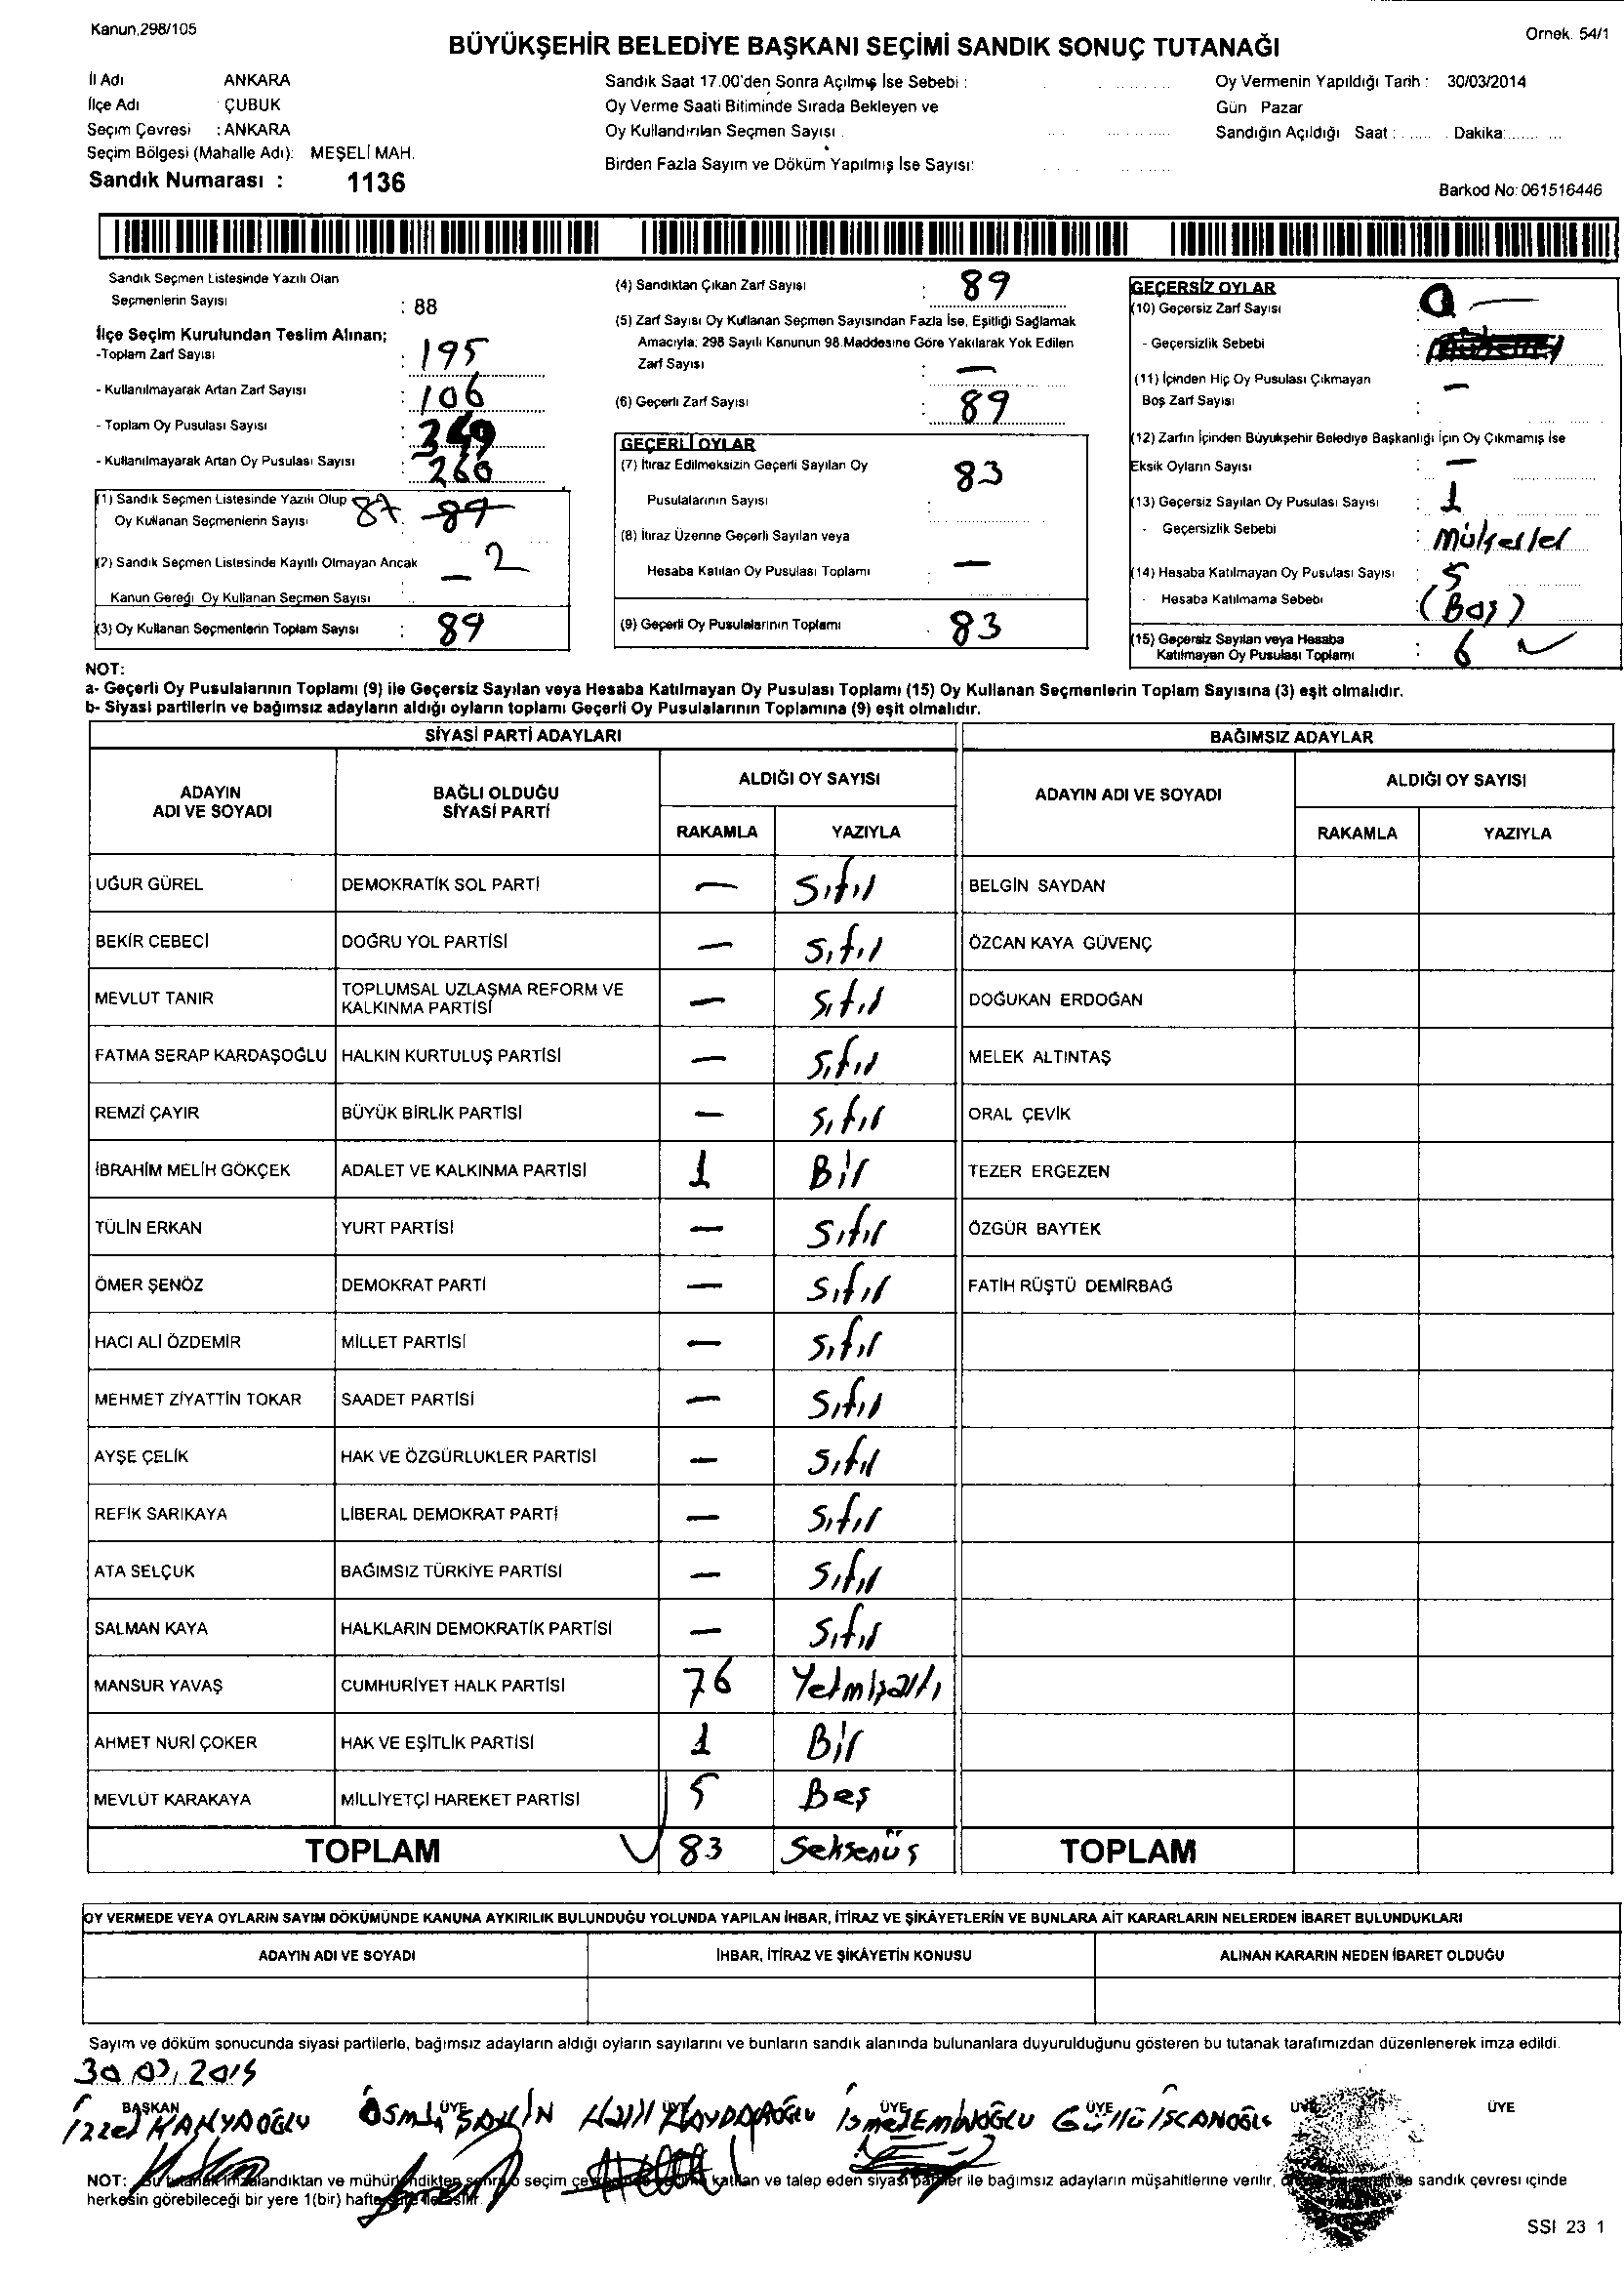 Kanun,298/105
Ornek. 54/1
BÜYÜKŞEHİR BELEDİYE BAŞKANI SEÇİMİ SANDIK SONUÇ TUTANAĞI
İl Adı ANKARA
İlçe Adı ÇUBUK
Seçim Çevresi : ANKARA
Seçim Bölgesi (Mahalle Adı): MEŞELİ MAH.
Sandık Numarası : 1136
Sandık Saat 17.00'den Sonra Açılmış İse Sebebi :
Oy Verme Saati Bitiminde Sırada Bekleyen ve
Oy Kullandırılan Seçmen Sayısı
Birden Fazla Sayım ve Döküm Yapılmış İse Sayısı:
Oy Vermenin Yapıldığı Tarih : 30/03/2014
Gün Pazar
Sandığın Açıldığı Saat : Dakika:
Barkod No: 061516446
Sandık Seçmen Listesinde Yazılı Olan
Seçmenlerin Sayısı : 88
İlçe Seçim Kurulundan Teslim Alınan;
-Toplam Zarf Sayısı : 195
- Kullanılmayarak Artan Zarf Sayısı : 106
- Toplam Oy Pusulası Sayısı : 349
- Kullanılmayarak Artan Oy Pusulası Sayısı : 260
(1) Sandık Seçmen Listesinde Yazılı Olup
Oy Kullanan Seçmenlerin Sayısı 87 89
(2) Sandık Seçmen Listesinde Kayıtlı Olmayan Ancak — 2
Kanun Gereği Oy Kullanan Seçmen Sayısı
(3) Oy Kullanan Seçmenlerin Toplam Sayısı : 89
(4) Sandıktan Çıkan Zarf Sayısı : 89
(5) Zarf Sayısı Oy Kullanan Seçmen Sayısından Fazla İse, Eşitliği Sağlamak
Amacıyla; 298 Sayılı Kanunun 98.Maddesine Göre Yakılarak Yok Edilen
Zarf Sayısı : —
(6) Geçerli Zarf Sayısı : 89
GEÇERLİ OYLAR
(7) İtiraz Edilmeksizin Geçerli Sayılan Oy
Pusulalarının Sayısı : 83
(8) İtiraz Üzerine Geçerli Sayılan veya
Hesaba Katılan Oy Pusulası Toplamı : —
(9) Geçerli Oy Pusulalarının Toplamı 83
GEÇERSİZ OYLAR
(10) Geçersiz Zarf Sayısı : 0 —
- Geçersizlik Sebebi :
(11) İçinden Hiç Oy Pusulası Çıkmayan
Boş Zarf Sayısı : —
(12) Zarfın İçinden Büyükşehir Belediye Başkanlığı İçin Oy Çıkmamış İse
Eksik Oyların Sayısı : —
(13) Geçersiz Sayılan Oy Pusulası Sayısı : 1
- Geçersizlik Sebebi :
(14) Hesaba Katılmayan Oy Pusulası Sayısı : 5
- Hesaba Katılmama Sebebi (Boş)
(15) Geçersiz Sayılan veya Hesaba
Katılmayan Oy Pusulası Toplamı : 6
NOT:
a- Geçerli Oy Pusulalarının Toplamı (9) ile Geçersiz Sayılan veya Hesaba Katılmayan Oy Pusulası Toplamı (15) Oy Kullanan Seçmenlerin Toplam Sayısına (3) eşit olmalıdır.
b- Siyasi partilerin ve bağımsız adayların aldığı oyların toplamı Geçerli Oy Pusulalarının Toplamına (9) eşit olmalıdır.
SİYASİ PARTİ ADAYLARI BAĞIMSIZ ADAYLAR
ADAYIN ADI VE SOYADI
BAĞLI OLDUĞU SİYASİ PARTİ
ALDIĞI OY SAYISI
RAKAMLA YAZIYLA
ADAYIN ADI VE SOYADI
ALDIĞI OY SAYISI
RAKAMLA YAZIYLA
UĞUR GÜREL DEMOKRATİK SOL PARTİ — Sıfır BELGİN SAYDAN
BEKİR CEBECİ DOĞRU YOL PARTİSİ — Sıfır ÖZCAN KAYA GÜVENÇ
MEVLUT TANIR TOPLUMSAL UZLAŞMA REFORM VE KALKINMA PARTİSİ — Sıfır DOĞUKAN ERDOĞAN
FATMA SERAP KARDAŞOĞLU HALKIN KURTULUŞ PARTİSİ — Sıfır MELEK ALTINTAŞ
REMZİ ÇAYIR BÜYÜK BİRLİK PARTİSİ — Sıfır ORAL ÇEVİK
İBRAHİM MELİH GÖKÇEK ADALET VE KALKINMA PARTİSİ 1 Bir TEZER ERGEZEN
TÜLİN ERKAN YURT PARTİSİ — Sıfır ÖZGÜR BAYTEK
ÖMER ŞENÖZ DEMOKRAT PARTİ — Sıfır FATİH RÜŞTÜ DEMİRBAĞ
HACI ALİ ÖZDEMİR MİLLET PARTİSİ — Sıfır
MEHMET ZİYATTİN TOKAR SAADET PARTİSİ — Sıfır
AYŞE ÇELİK HAK VE ÖZGÜRLUKLER PARTİSİ — Sıfır
REFİK SARIKAYA LİBERAL DEMOKRAT PARTİ — Sıfır
ATA SELÇUK BAĞIMSIZ TÜRKİYE PARTİSİ — Sıfır
SALMAN KAYA HALKLARIN DEMOKRATİK PARTİSİ — Sıfır
MANSUR YAVAŞ CUMHURİYET HALK PARTİSİ 76 Yetmişaltı
AHMET NURİ ÇOKER HAK VE EŞİTLİK PARTİSİ 1 Bir
MEVLÜT KARAKAYA MİLLİYETÇİ HAREKET PARTİSİ 5 Beş
TOPLAM 83 Seksenüç TOPLAM
OY VERMEDE VEYA OYLARIN SAYIM DÖKÜMÜNDE KANUNA AYKIRILIK BULUNDUĞU YOLUNDA YAPILAN İHBAR, İTİRAZ VE ŞİKÂYETLERİN VE BUNLARA AİT KARARLARIN NELERDEN İBARET BULUNDUKLARI
ADAYIN ADI VE SOYADI İHBAR, İTİRAZ VE ŞİKÂYETİN KONUSU ALINAN KARARIN NEDEN İBARET OLDUĞU
Sayım ve döküm sonucunda siyasi partilerle, bağımsız adayların aldığı oyların sayılarını ve bunların sandık alanında bulunanlara duyurulduğunu gösteren bu tutanak tarafımızdan düzenlenerek imza edildi.
BAŞKAN ÜYE ÜYE ÜYE ÜYE ÜYE ÜYE
NOT: Bu tutanak imzalandıktan ve mühürlendikten sonra o seçim katılan ve talep eden siyasi partiler ile bağımsız adayların müşahitlerine verilir, sandık çevresi içinde
herkesin görebileceği bir yere 1(bir) hafta
SSI 23 1